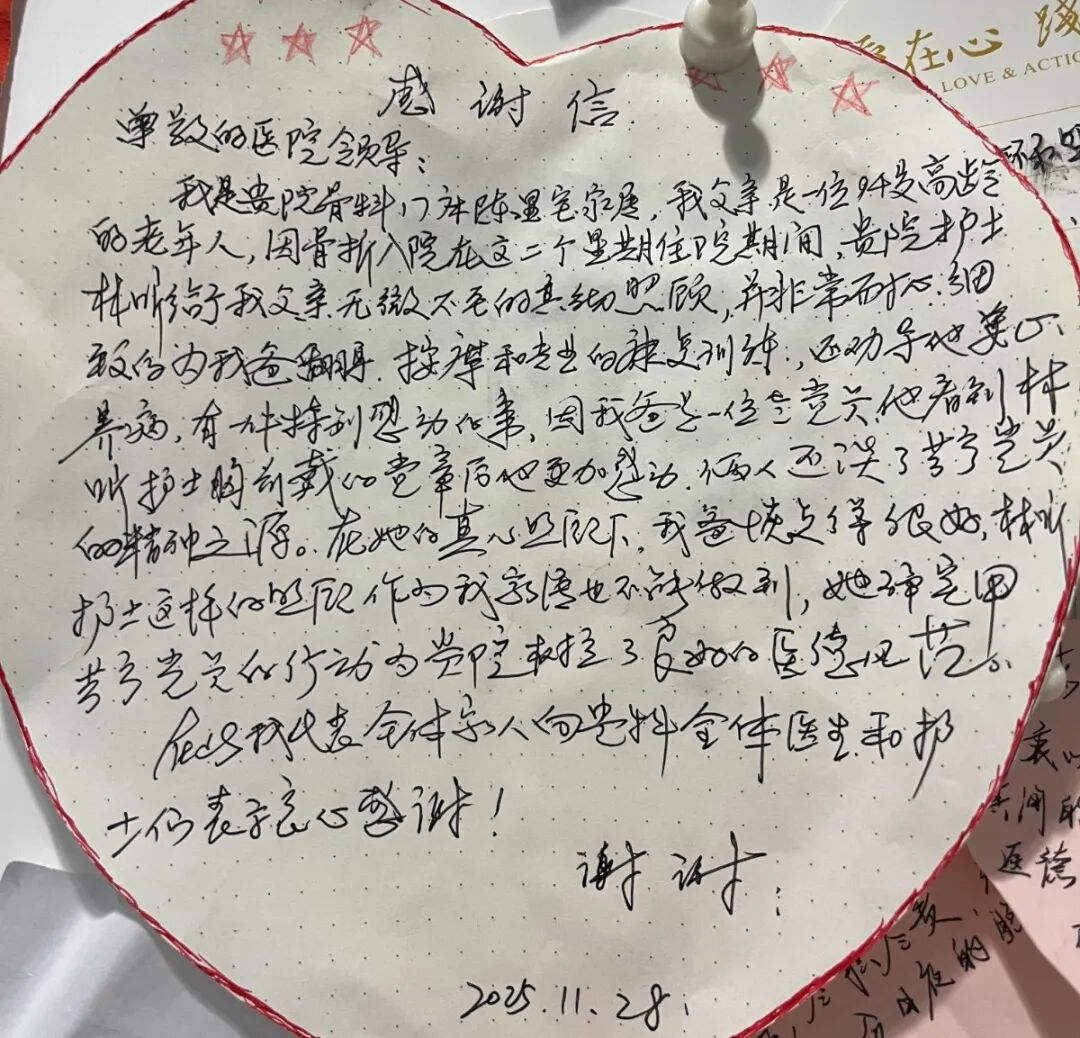 在心 践
LOVE & ACTIO
感谢信
尊敬的医院领导：
我是贵院骨科17床陈星宅家属，我父亲是一位94岁高龄
的老年人，因骨折入院在这二个星期住院期间，贵院护士
林昕给予我父亲无微不至的真切照顾，并非常耐心、细
致的为我爸翻身、按摩和专业的康复训练，还劝导他安心
养病，有一件特别感动的事，因我爸是一位老党员他看到林
昕护士胸前戴的党章后他更加感动，俩人还谈了共产党员
的精神之源。在她的真心照顾下，我爸恢复得很好，林昕
护士这样的照顾作为我家属也不能做到，她确实用
共产党员的行动为贵院树立了良好的医德风范。
在此我代表全体家人向贵科全体医生和护
士们表示衷心感谢！
谢谢
2025.11.28.
医德